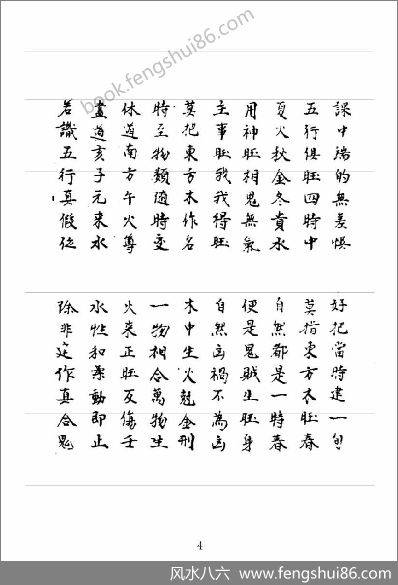 book.fengshui86.com
課中端的無差悮
好把當時建一旬
五行俱旺四時中
莫指東方木旺春
夏火秋金冬貴水
自然都是一時春
用神旺相鬼無氣
便是鬼賊生旺身
主事旺我我得旺
自然凶禍不為凶
莫把東方木作名
木中生火剋金刑
時至物類隨時变
一物相合萬物生
休道南方午火尊
火來正旺反傷壬
盡道亥子元來水
水性和柔動即止
若識五行真假
除非定作真合鬼
4
风水八六 www.fengshui86.com